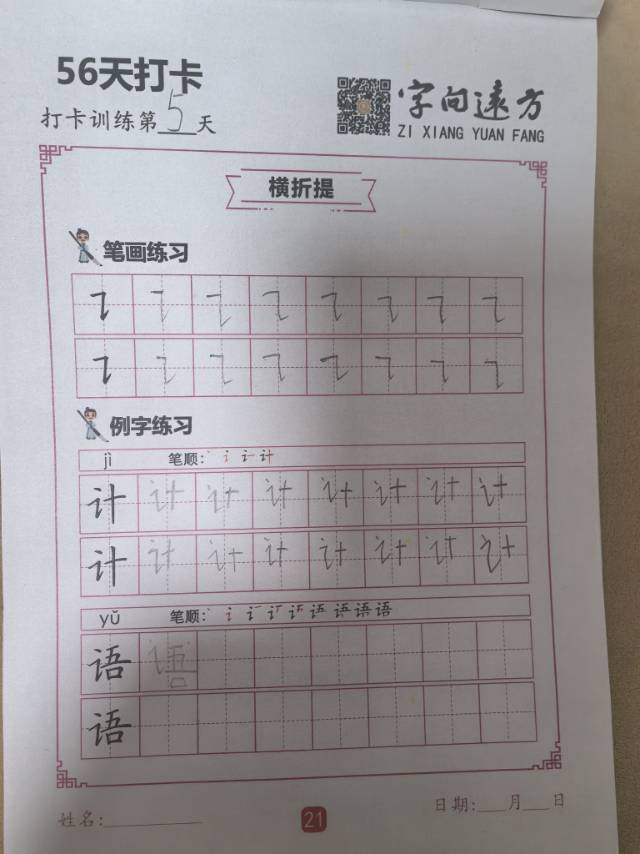 56天打卡
打卡训练第5天
字向远方
ZI XIANG YUAN FANG
横折提
笔画练习
㇊ ㇊ ㇊ ㇊ ㇊ ㇊ ㇊ ㇊
㇊ ㇊ ㇊ ㇊ ㇊ ㇊ ㇊ ㇊
例字练习
jì 笔顺:
计 计 计 计 计 计 计 计
计 计 计 计 计 计 计 计
yǔ 笔顺:
语 语
语
姓名:
21
日期: 月 日